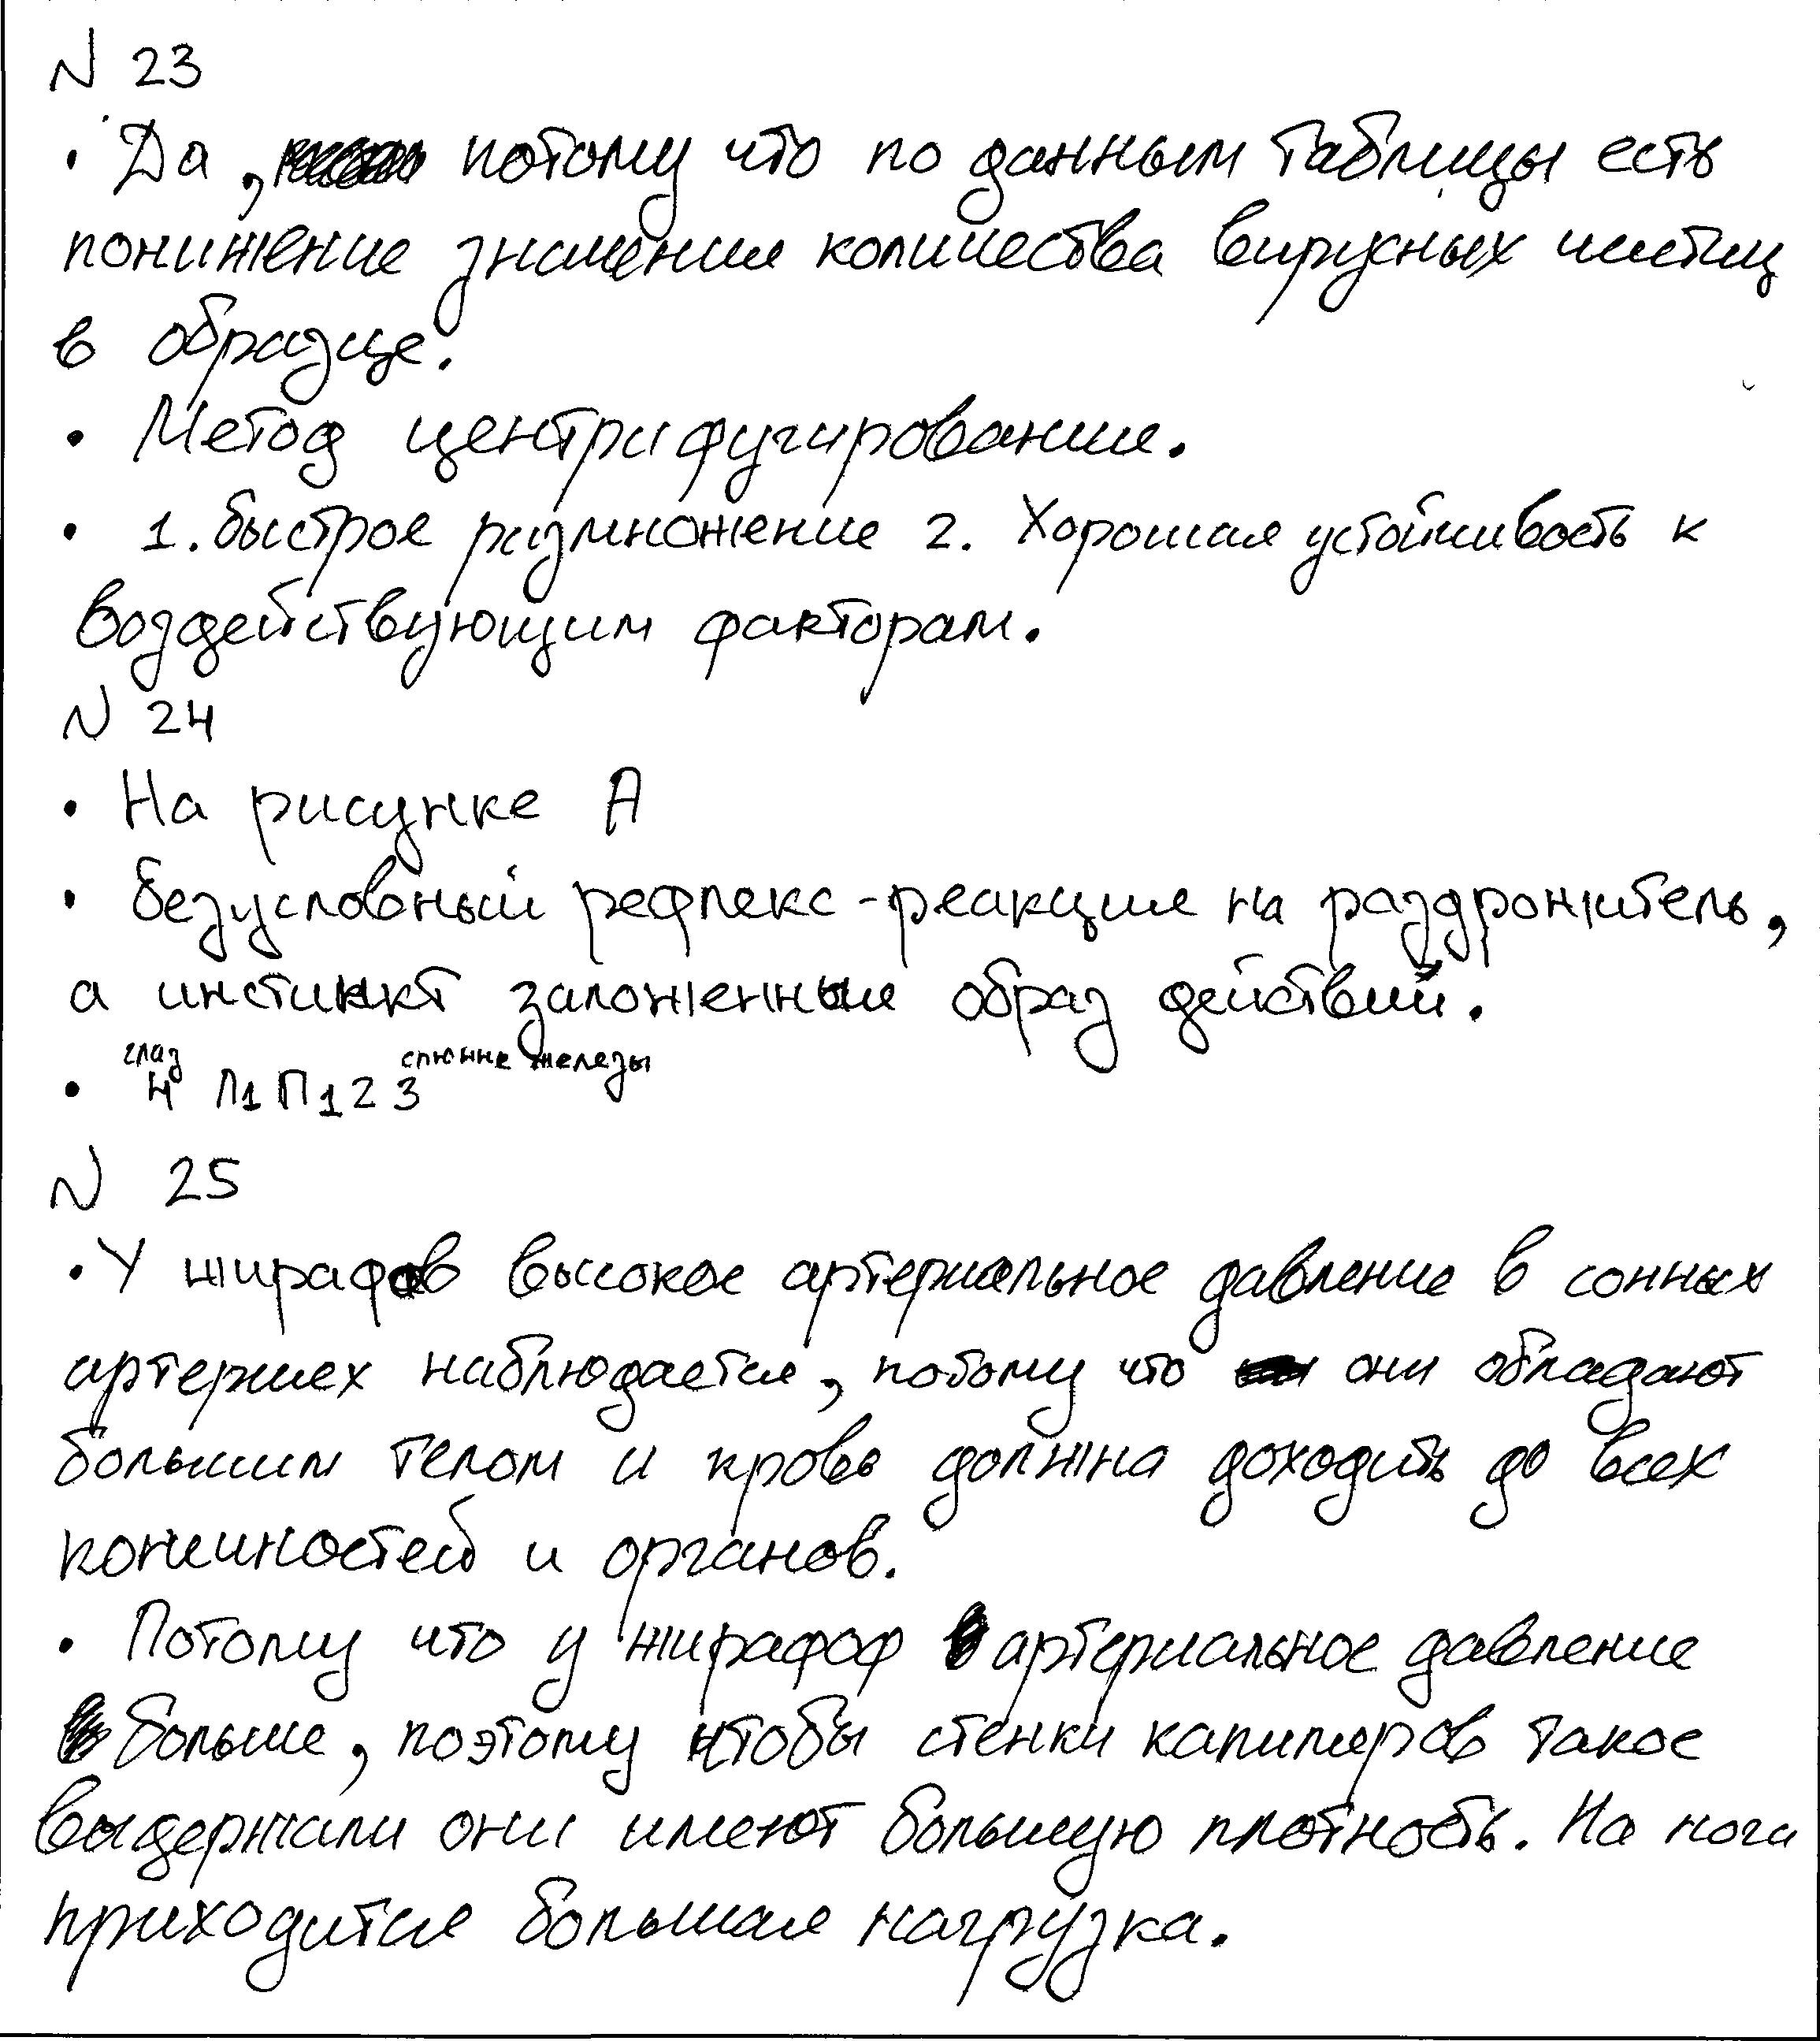 N 23
• Да, потому что по данным таблицы есть
понижение значения количества вирусных частиц
в образце.
• Метод центрифугирования.
• 1. быстрое размножение 2. Хорошая устойчивость к
воздействующим факторам.
N 24
• На рисунке А
• безусловный рефлекс - реакция на раздрожитель,
а инстинкт заложенный образ действий.
глаз слюнне железы
• 4 Л1 П1 2 3
N 25
• У жирафов высокое артериальное давление в сонных
артериях наблюдается, потому что они обладают
большим телом и кровь должна доходить до всех
конечностей и органов.
• Потому что у жирафоф артериальное давление
больше, поэтому чтобы стенки капиляров такое
выдержали они имеют большую плотность. На ноги
приходится большая нагрузка.